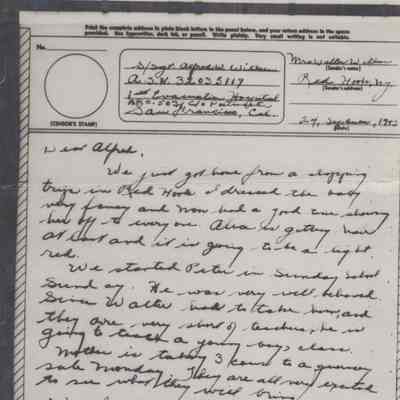 Print the complete address in plain block letters in the panel below, and your return address in the space
provided. Use typewriter, dark ink, or pencil. Write plainly. Very small writing is not suitable.
No.
(CENSOR'S STAMP)
S/Sgt. Alfred W.
A.S.N. 32035119
1st Evacuation Hospital
San Francisco, Cal.
Mrs Walter
(Sender's name)
Red Hook, NY
(Sender's address)
(Date)
Dear Alfred,
We just got home from a shopping
trip in Red Hook. I dressed the baby
very fancy and Mom had a good time showing
her off to everyone. is getting hair
at last and it is going to be a light
red.
We started Peter in Sunday school
Sunday. He was very well behaved.
Since Walter had to take him, and
they are very short of teachers, he is
going to teach a young boys class.
Mother is taking 3 cows to a
sale Monday. They are all very excited
to see what they will bring